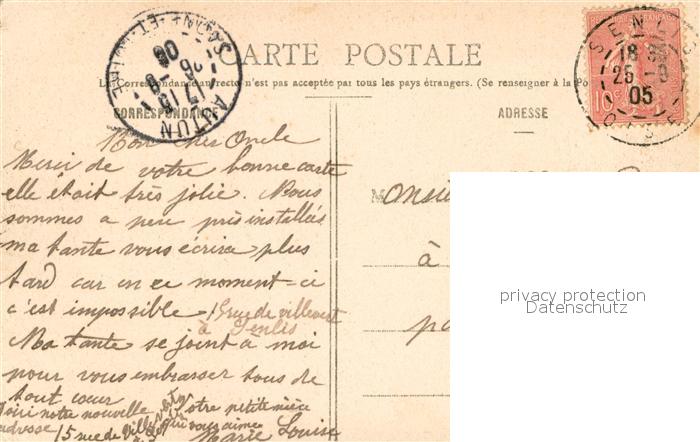 CARTE POSTALE
La Correspondance au recto n'est pas acceptée par tous les pays étrangers. (Se renseigner à la Po
CORRESPONDANCE
ADRESSE
SAONE-ET-LOIRE
AUTUN
SENLIS
OISE
25
05
10
Mon cher Oncle
Merci de votre bonne carte
elle était très jolie. Nous
sommes a peu près installés
ma tante vous écrira plus
tard car en ce moment-ci
c'est impossible
15 rue de villevert
à Senlis
Ma tante se joint a moi
pour vous embrasser tous de
tout cœur
Voici notre nouvelle
adresse 15 rue de
Votre petite nièce
qui vous aime
Marie Louise
Monsie
à
privacy protection
Datenschutz